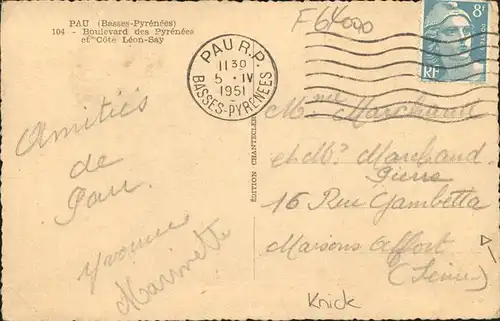 PAU (Basses-Pyrénées)
104 - Boulevard des Pyrénées
et Côte Léon-Say
F64000
PAU R.P.
11 30
5 - IV
1951
BASSES-PYRENEES
8F
RF
Amitiés
de
Pau.
Yvonne
Marinette
ÉDITION CHANTECLER
Mme Marchand
et Mr Marchand
Pierre
16 Rue Gambetta
Maisons Alfort
(Seine)
Knick